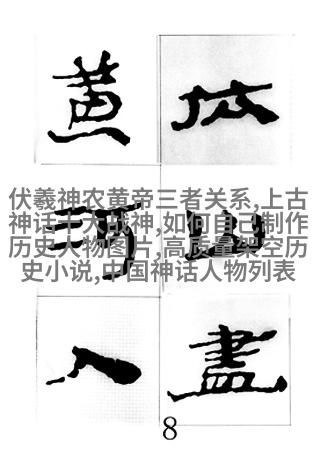 依山盡
黄河入
伏羲神农黄帝三者关系,上古
神话十大战神,如何自己制作
历史人物图片,高质量架空历
史小说,中国神话人物列表
8